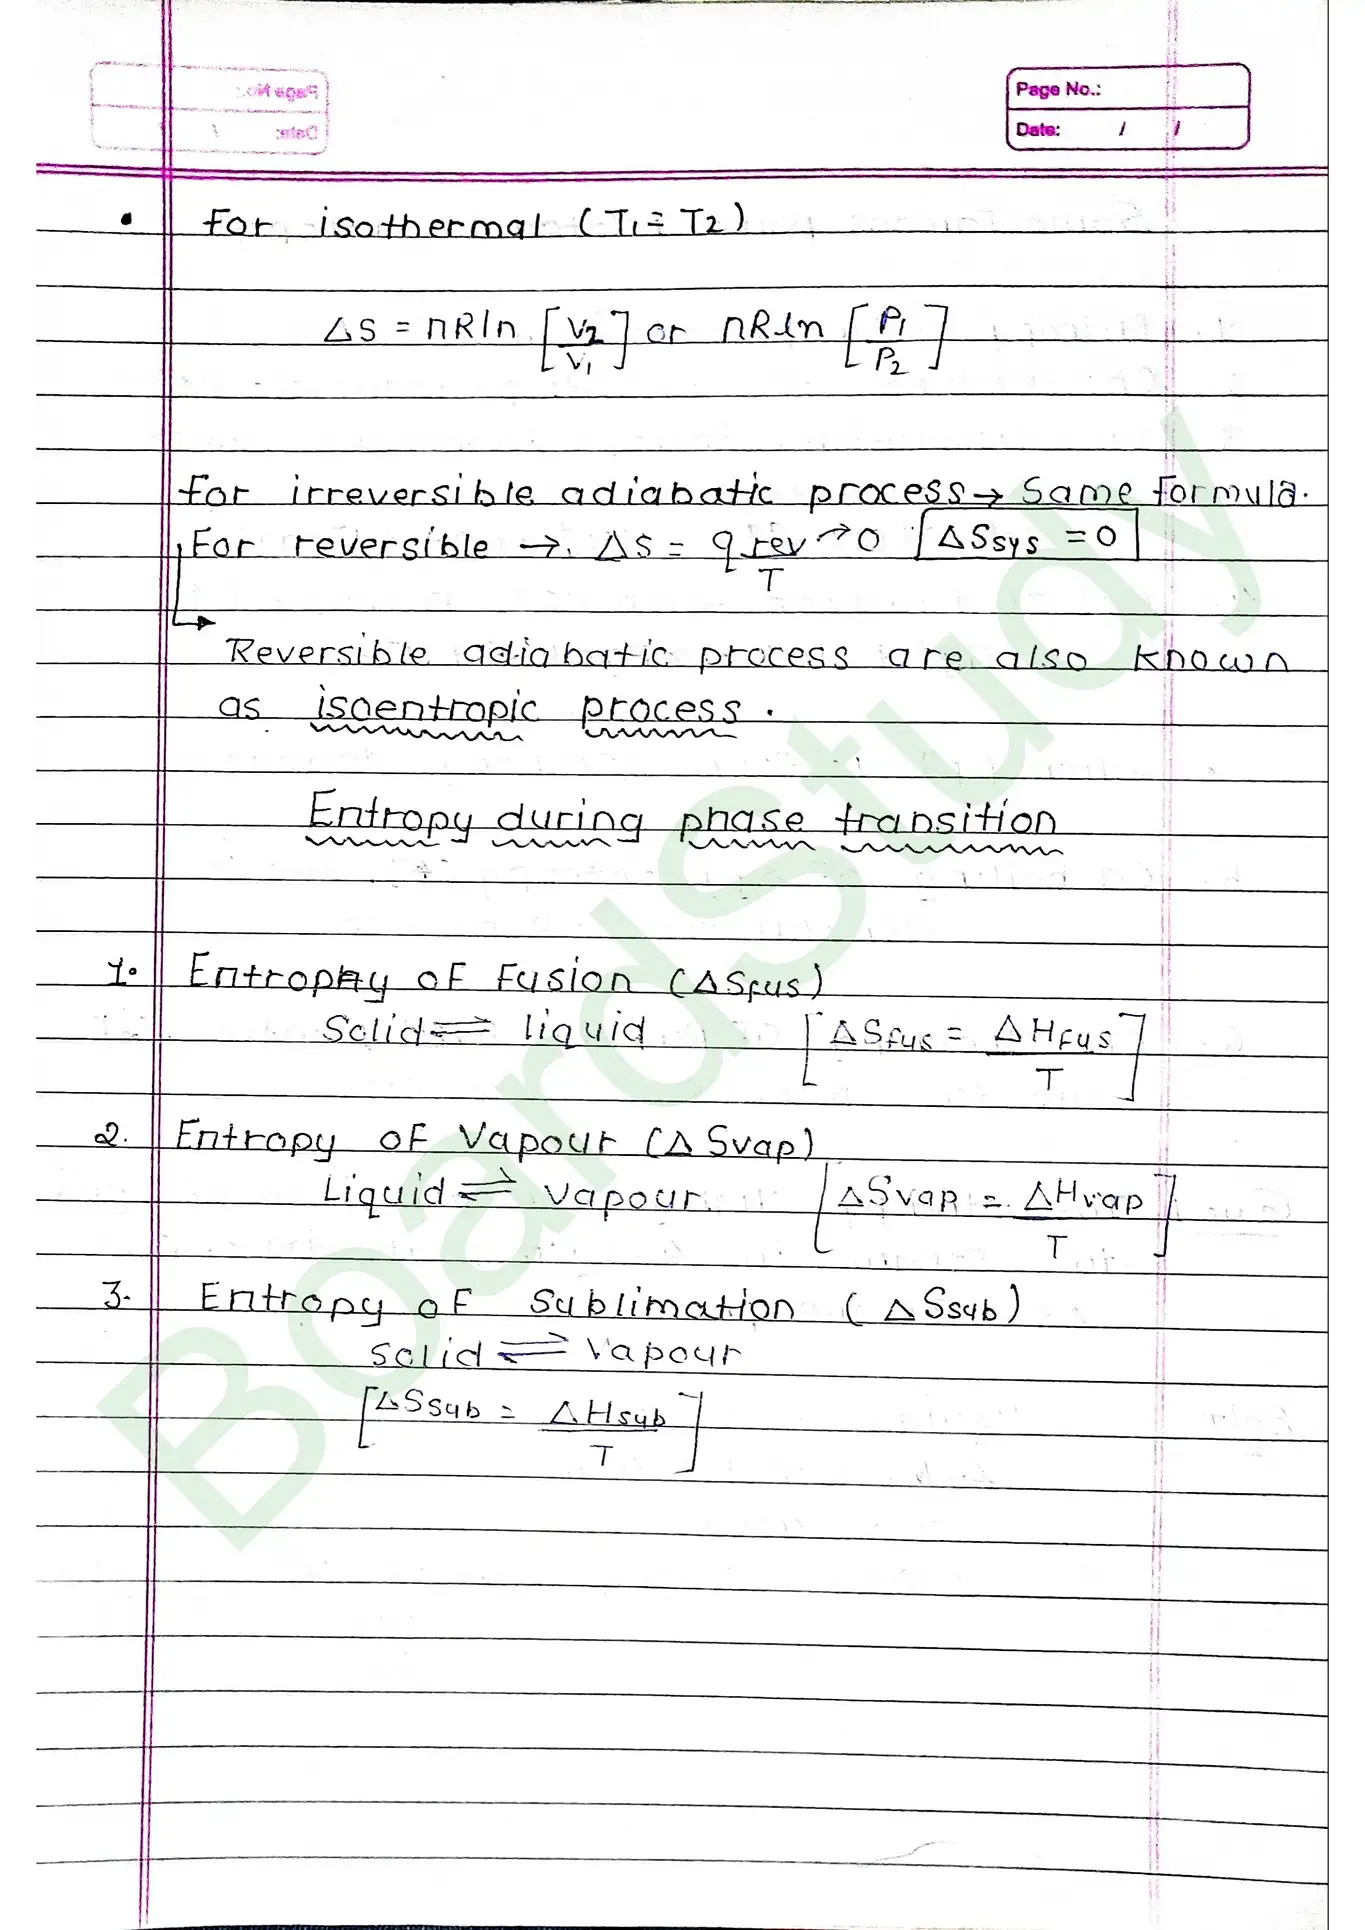 Page No.:
Date: / /
• For isothermal (T1 = T2)
ΔS = nRln [V2/V1] or nRln [P1/P2]
For irreversible adiabatic process → Same formula.
For reversible → ΔS = qrev/T → 0 ΔSsys = 0
Reversible adiabatic process are also known
as isoentropic process.
Entropy during phase transition
1. Entrophy of Fusion (ΔSfus)
Solid ⇌ liquid [ΔSfus = ΔHfus/T]
2. Entropy of Vapour (ΔSvap)
Liquid ⇌ vapour. [ΔSvap = ΔHvap/T]
3. Entropy of Sublimation (ΔSsub)
Solid ⇌ Vapour
[ΔSsub = ΔHsub/T]
BoardStudy